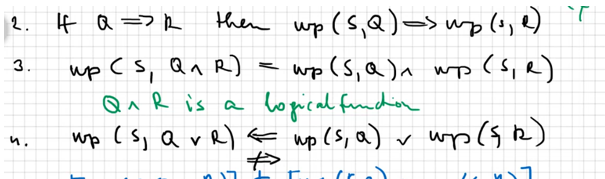 2. If Q => R then wp (S,Q) => wp (s, R)
3. wp ( S, Q ∧ R) = wp (S, Q) ∧ wp (S, R)
Q ∧ R is a logical function
4. wp (S, Q ∨ R) <= wp (S, Q) ∨ wp (S, R)
≠>